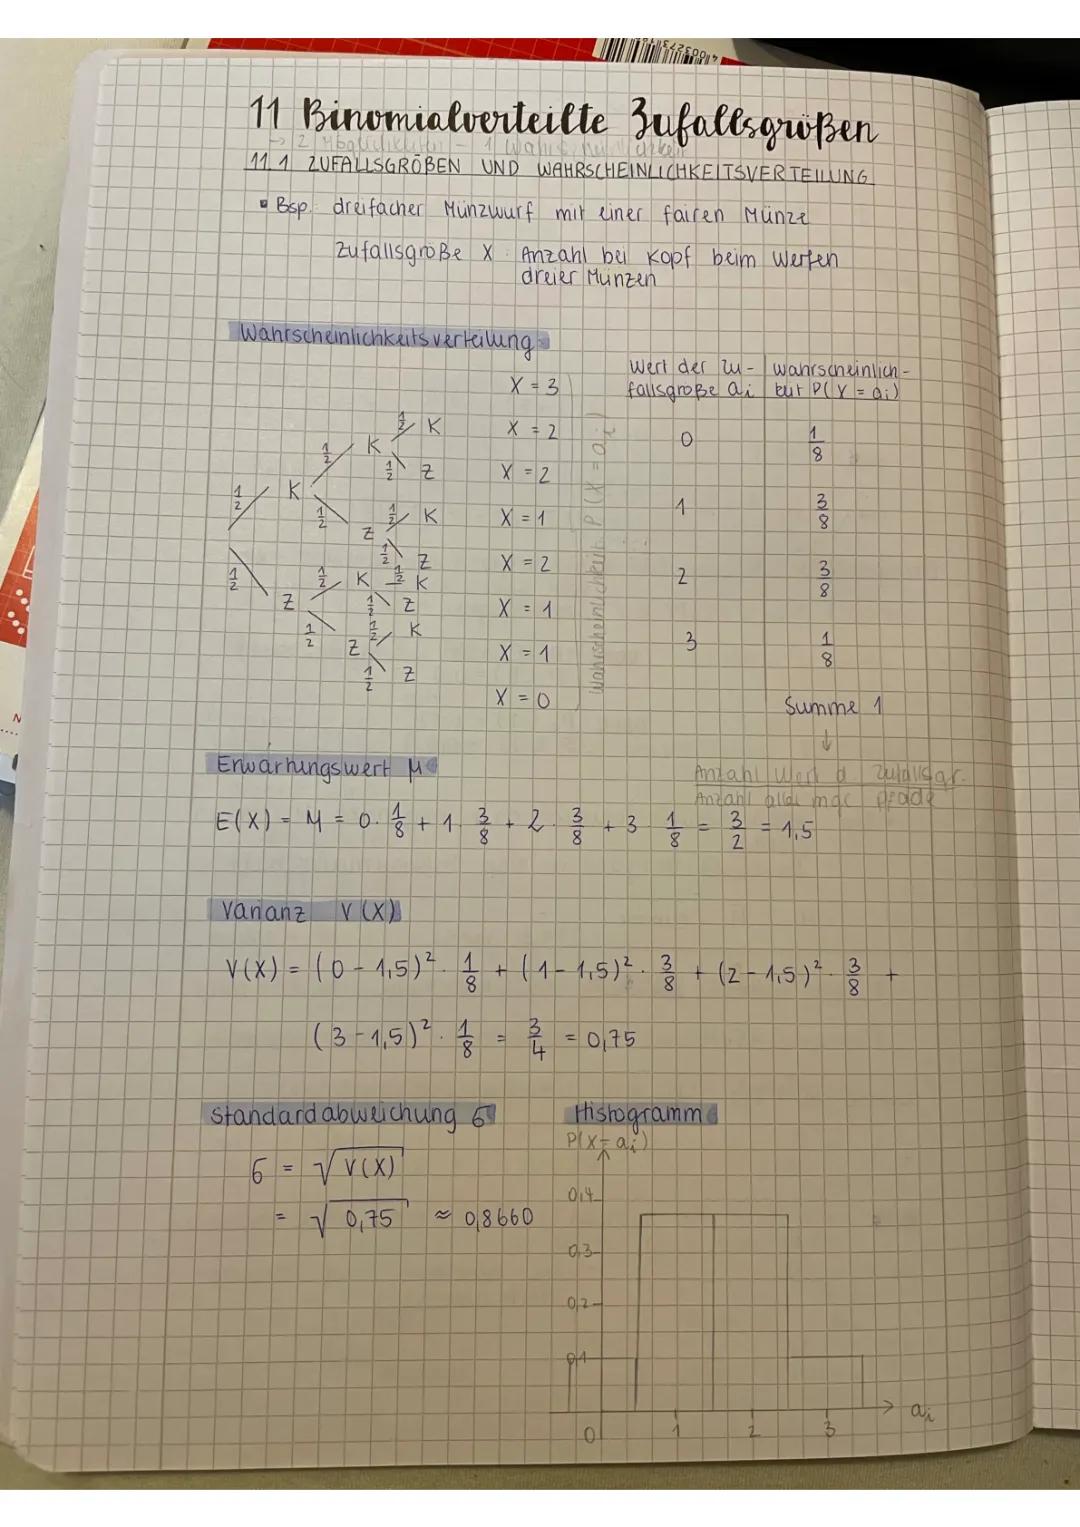 11 Binomialverteilte Zufallsgrößen
→ 2 Möglichkeiten - 1 Wahrscheinlichkeit
11.1 ZUFALLSGRÖßEN UND WAHRSCHEINLICHKEITSVERTEILUNG
Bsp. dreifacher Münzwurf mit einer fairen Münze
Zufallsgröße X: Anzahl bei Kopf beim Werfen
dreier Münzen
Wahrscheinlichkeitsverteilung
1/2 K 1/2 K 1/2 K
1/2 Z
1/2 Z 1/2 K
1/2 Z
1/2 Z 1/2 K 1/2 K
1/2 Z
1/2 Z 1/2 K
1/2 Z
X = 3
X = 2
X = 2
X = 1
X = 2
X = 1
X = 1
X = 0
Wahrscheinlichkeit P(X = ai)
Wert der Zu- | Wahrscheinlich-
fallsgröße ai | keit P(X = ai)
0 1/8
1 3/8
2 3/8
3 1/8
Summe 1
↓
Anzahl Wert d. Zufallsgr.
Anzahl aller mgl. Pfade
Erwartungswert μ
E(X) = M = 0 · 1/8 + 1 · 3/8 + 2 · 3/8 + 3 · 1/8 = 3/2 = 1,5
Varianz V(X)
V(X) = (0 - 1,5)² · 1/8 + (1 - 1,5)² · 3/8 + (2 - 1,5)² · 3/8 +
(3 - 1,5)² · 1/8 = 3/4 = 0,75
Standardabweichung σ
σ = √V(X)
= √0,75 ≈ 0,8660
Histogramm
P(X = ai)
0,4
0,3
0,2
0,1
0 1 2 3 ai